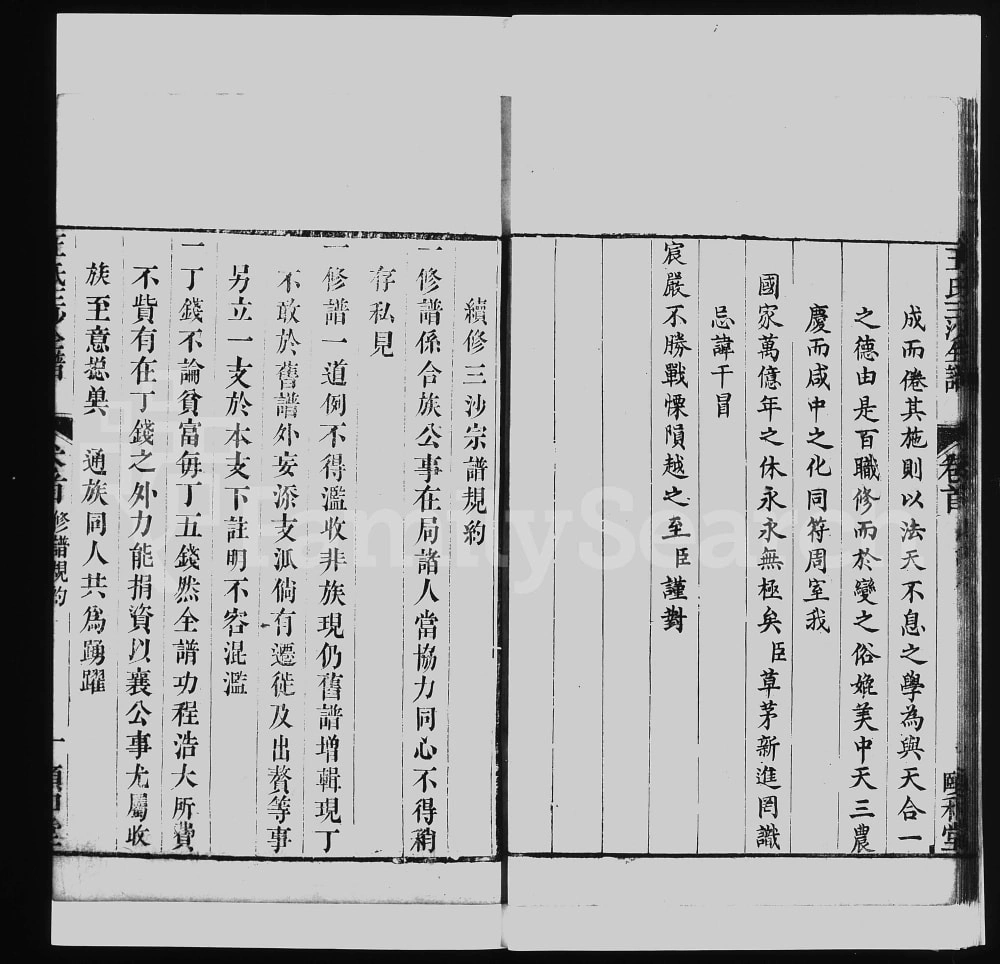 王氏三沙全譜
卷首
成而倦其施則以法天不息之學為與天合一
之德由是百職修而於變之俗媲美中天三農
慶而咸中之化同符周室我
國家萬億年之休永永無極矣臣草茅新進罔識
忌諱干冒
宸嚴不勝戰慄隕越之至臣謹對
續修三沙宗譜規約
一修譜係合族公事在局諸人當協力同心不得稍
存私見
一修譜一道例不得濫收非族現仍舊譜增輯現丁
不敢於舊譜外妄添支派倘有遷徙及出贅等事
另立一支於本支下註明不容混濫
一丁錢不論貧富每丁五錢然全譜功程浩大所費
不貲有在丁錢之外力能捐資以襄公事尤屬收
族至意揔兾 通族同人共為踴躍
卷首 修譜規約 一
FamilySearch